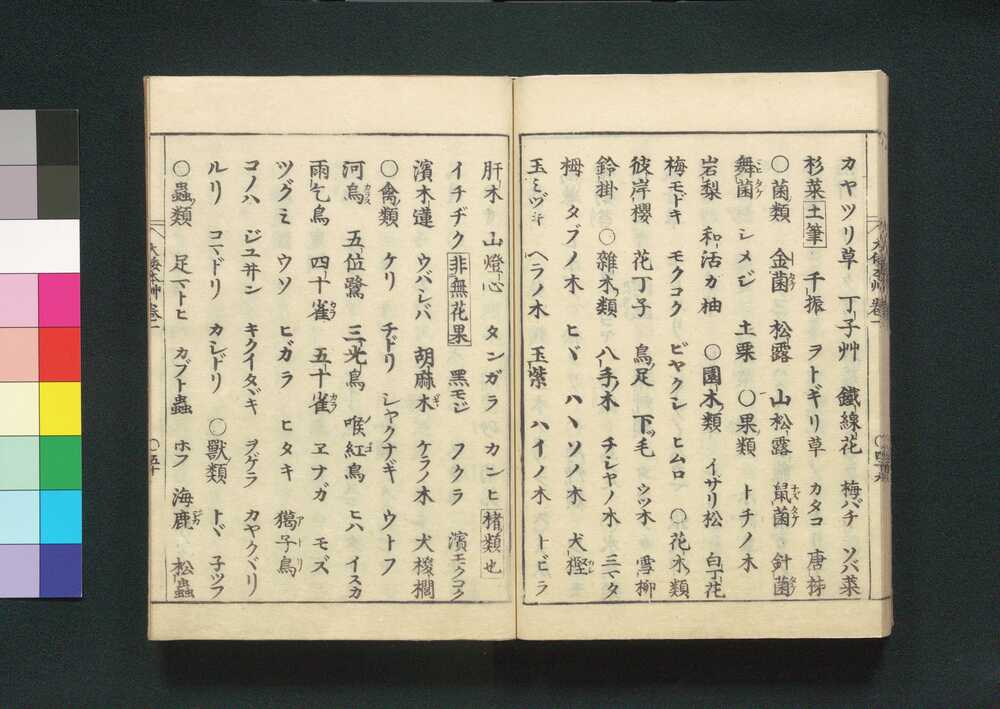 カヤツリ草 丁子艸 鐵線花 梅バチ ソバ菜
杉菜 土筆 千振 ヲトギリ草 カタコ 唐柹
○菌類 金菌 松露 山松露 鼠菌 針菌
舞菌 シメジ 土栗 ○果類 トチノ木
岩梨 和活カ柚 ○園木類 イサリ松 白丁花
梅モドキ モクコク ビヤクシ ヒムロ ○花木類
彼岸櫻 花丁子 鳥足 下毛 ウツ木 雪柳
鈴掛 ○雜木類 八手木 チシヤノ木 三マタ
栂 タブノ木 ヒヾ ハヽソノ木 犬樫
玉ミヅキ ヘラノ木 玉紫 ハイノ木 トビラ
大倭本艸 卷一 ○四十九
肝木 山燈心 タンガラ カンヒ 楮類也
イチヂク 非無花果 黑モジ フクラ 濱エクコク
濱木蓮 ウバシバ 胡麻木 ケラノ木 犬椶櫚
○禽類 ケリ チドリ シャクナギ ウトフ
河烏 五位鷺 三光鳥 喉紅鳥 ヒハ イスカ
雨乞鳥 四十雀 五十雀 ヱナガ モズ
ツグミ ウソ ヒガラ ヒタキ 獦子鳥
コノハ ジユ井ン キクイタヾキ ヲゲラ カヤクヾリ
ルリ コマドリ カシドリ ○獸類 トヾ 子ツフ
○蟲類 足マトヒ カブト蟲 ホフ 海鹿 松蟲
大倭本艸 卷一 ○五十